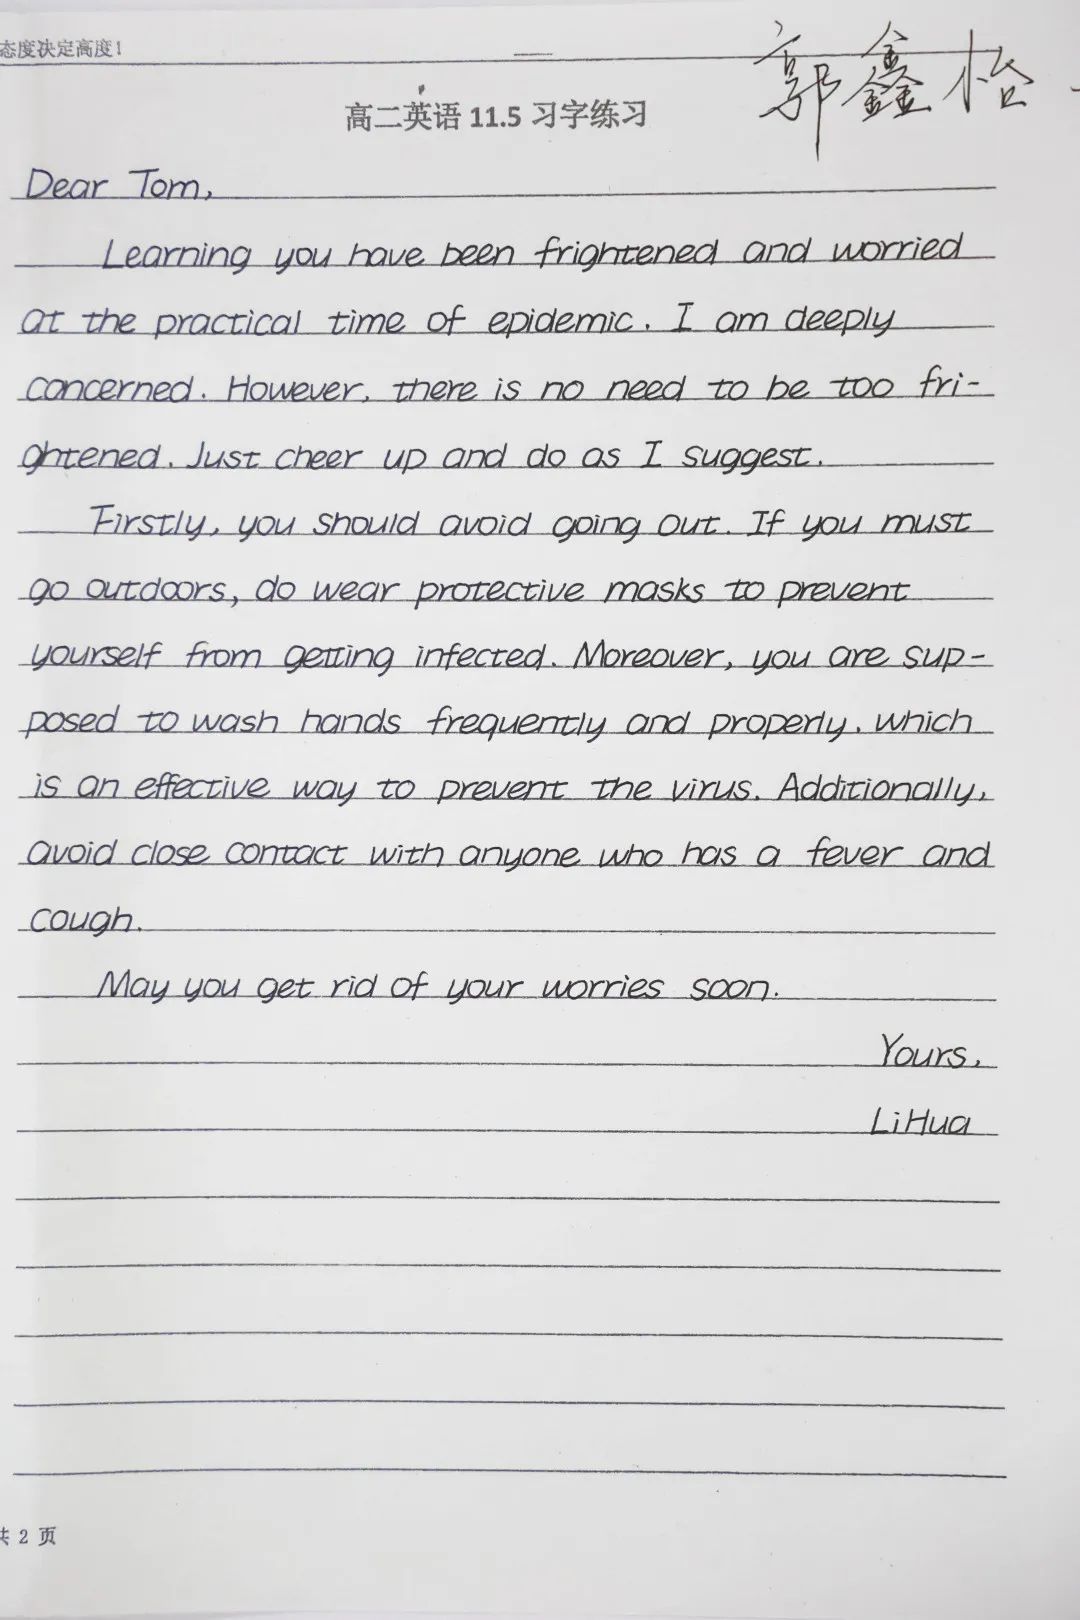 态度决定高度!
郭鑫怡
高二英语 11.5 习字练习
Dear Tom,
Learning you have been frightened and worried
at the practical time of epidemic. I am deeply
concerned. However, there is no need to be too fri-
ghtened. Just cheer up and do as I suggest.
Firstly, you should avoid going out. If you must
go outdoors, do wear protective masks to prevent
yourself from getting infected. Moreover, you are sup-
posed to wash hands frequently and properly, which
is an effective way to prevent the virus. Additionally,
avoid close contact with anyone who has a fever and
cough.
May you get rid of your worries soon.
Yours,
LiHua
共 2 页